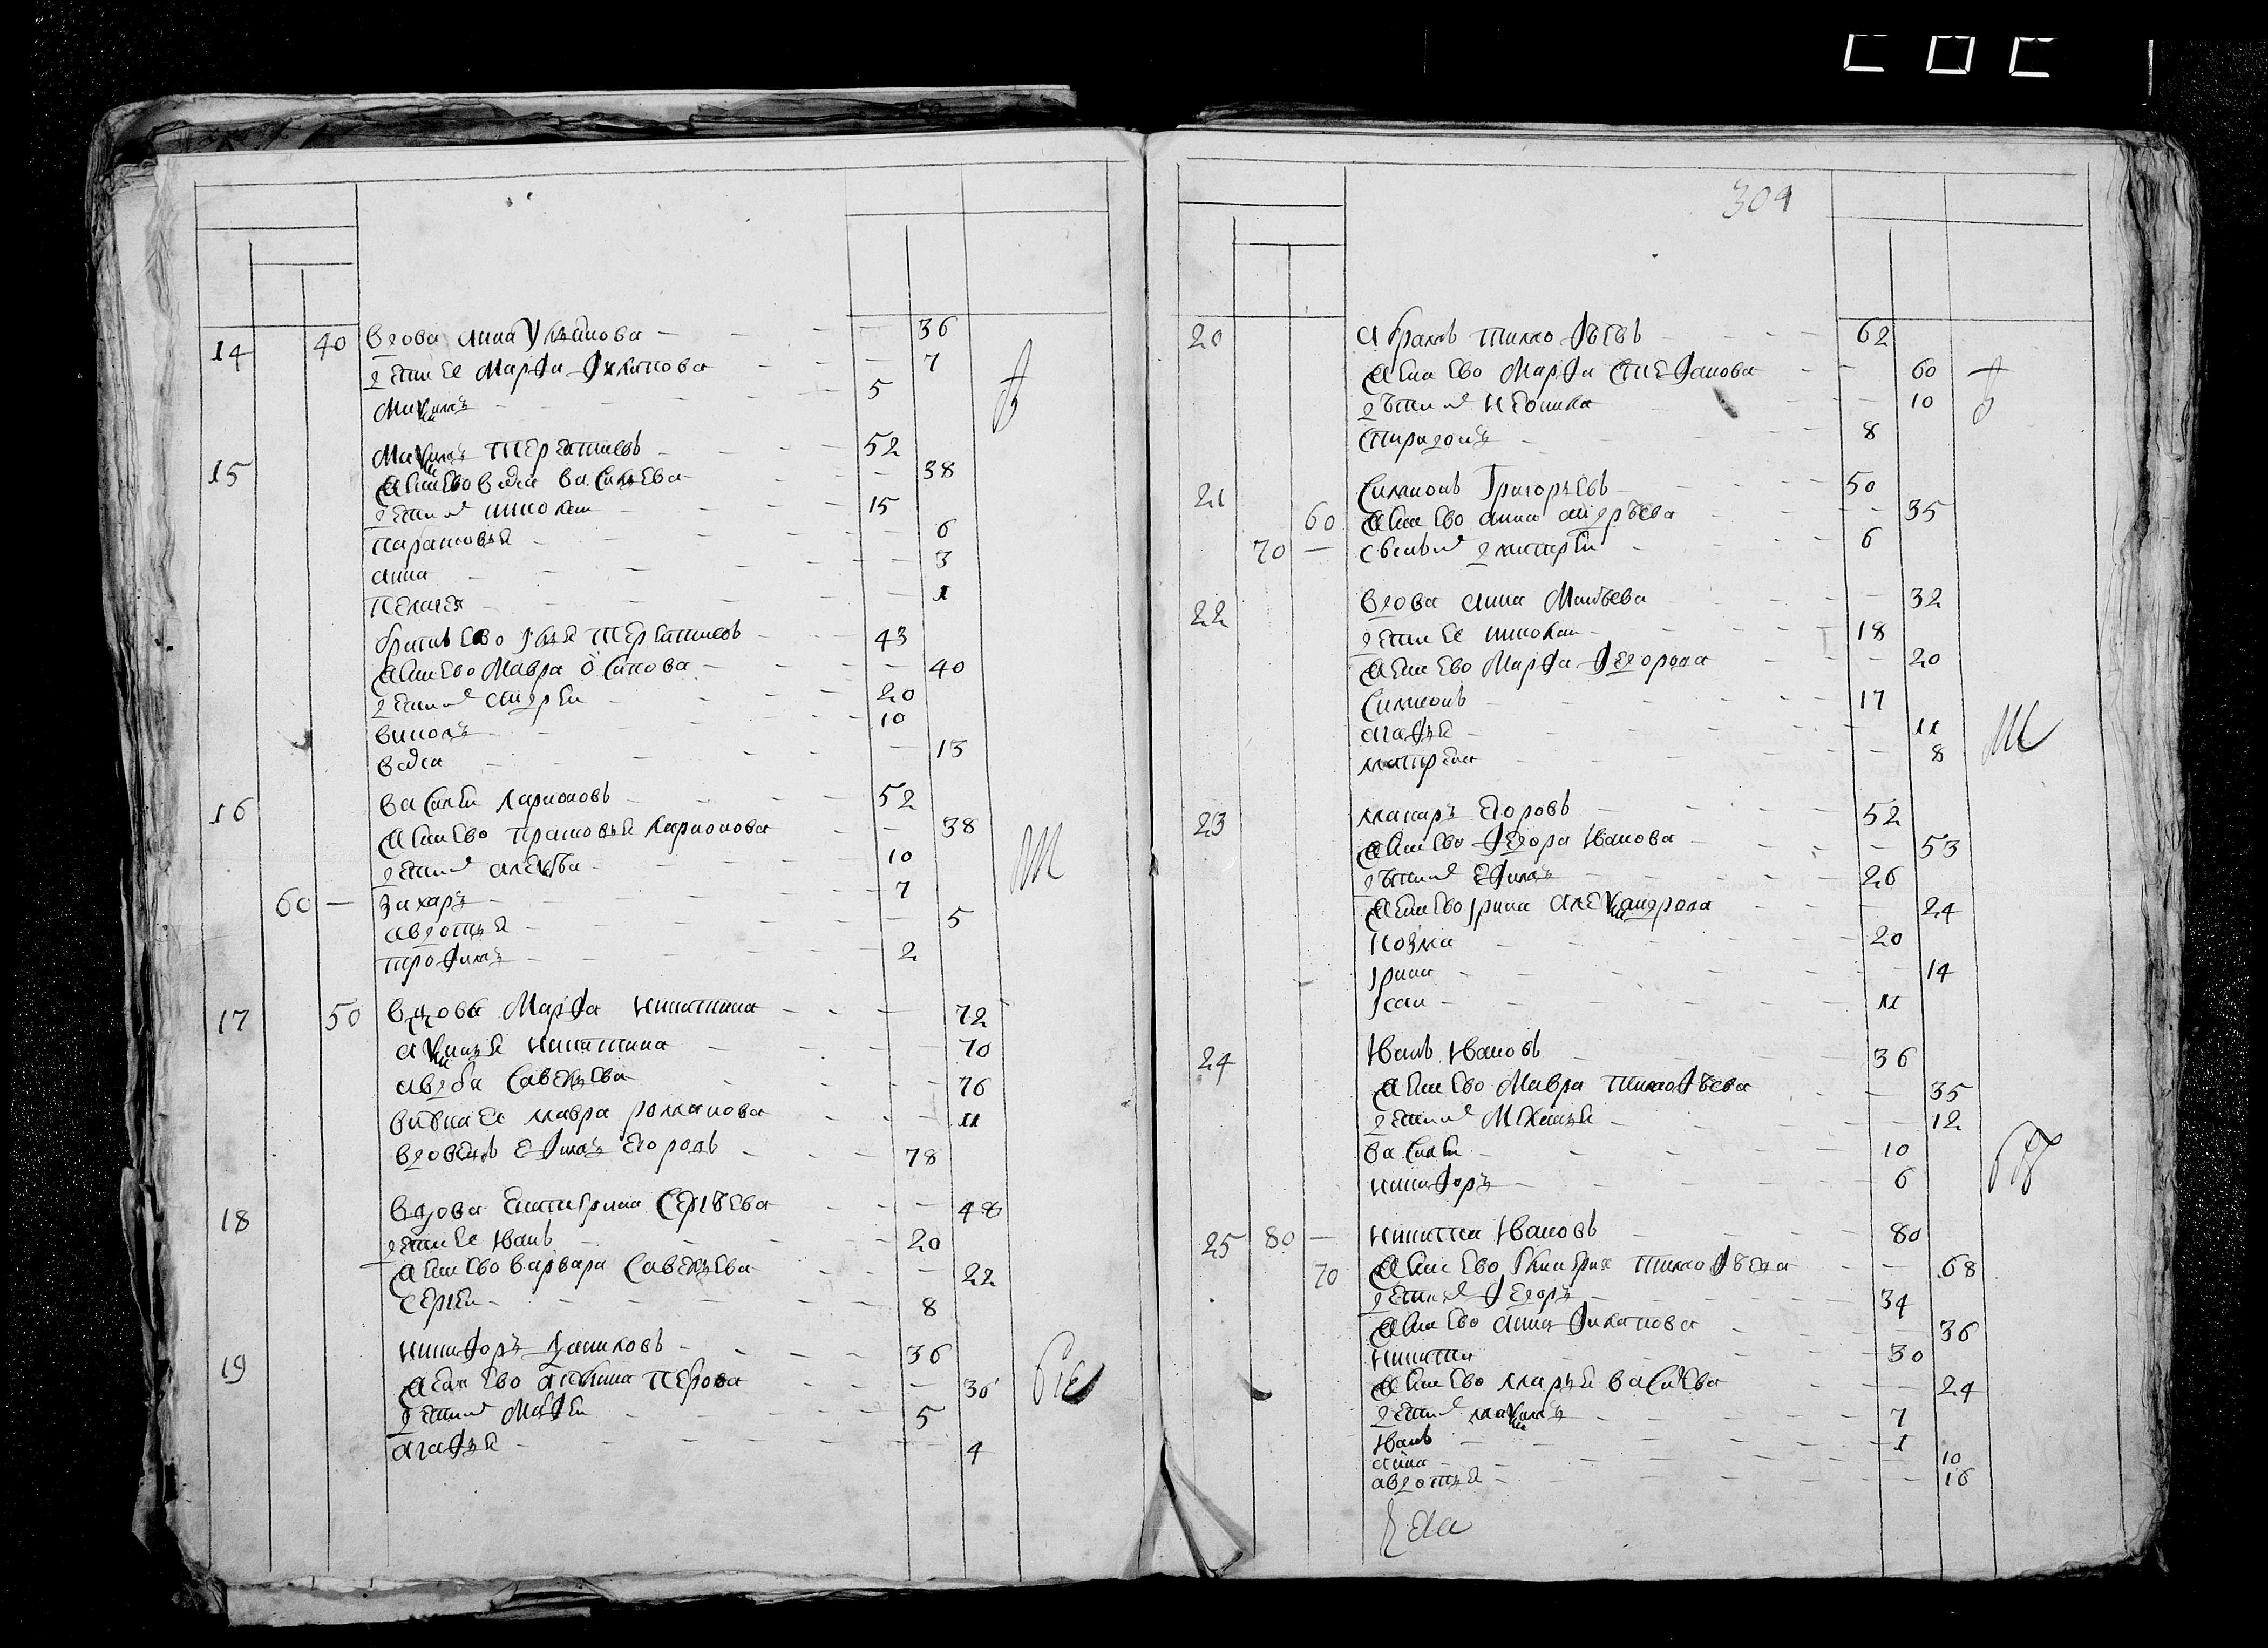 14 40 вдова анна Улянова 36
дети ее Марфа Филипова 7
Михаила 5
15 Михаила Терентиевъ 52
жена ево васса васильева 38
дети их николаи 15
парасковья 6
анна 3
пелагея 1
братъ ево Илья Терентиевъ 43
жена ево Мавра Осипова 40
дети их андреи 20
викола 10
васса 13
16 василеи ларионовъ 52
жена ево прасковья ларионова 38
дети их алексеи 10
60 захаръ 7
авдотья 5
трофимъ 2
17 50 вдова Марфа никитина 72
аксинья никитина 70
авдотья савельева 76
внука ее мавра романова 11
вдовецъ ефимъ егоровъ 78
18 вдова екатерина Сергеева 48
дети ее Иванъ 20
жена ево варвара савельева 22
сергеи 8
19 никифоръ даниловъ 36
жена ево 36
дети их Матфеи 5
агафья 4
304
20 абрамъ тимофеевъ 62
жена ево Марфа Стефанова 60
дети их 10
спиридонъ 8
21 Симионъ Григорьевъ 50
60 жена ево анна андреева 35
70 своихъ дмитреи 6
22 вдова анна Матвеева 32
дети ее николаи 18
жена ево Марфа Федорова 20
Симионъ 17
агафья 11
матрена 8
23 макаръ егоровъ 52
жена ево Федора Иванова 53
дети их ефимъ 26
жена ево Ирина александрова 24
козма 20
Ирина 14
Исаи 11
24 Иванъ Ивановъ 36
жена ево Мавра тимофеева 35
дети их Меланья 12
василеи 10
никифоръ 6
25 80 никита Ивановъ 80
70 жена ево тимофеева 68
дети их Федоръ 34
жена ево анна филипова 36
никита 30
жена ево марья васильева 24
дети их 7
Иванъ 1
анна 10
авдотья 16